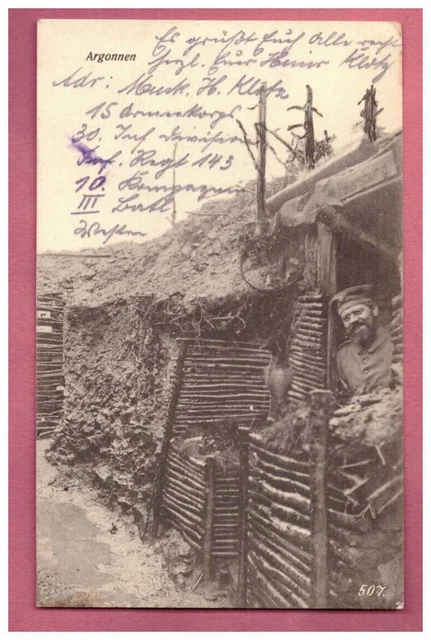 Argonnen
Es grüßt Euch Alle recht
herzl. Euer Heinr Klotz
Adr: Musk. H. Klotz
15 Armeekorps
30. Inf Division
Inf. Regt 143
10. Kompagnie
III Batl
Westen
507.